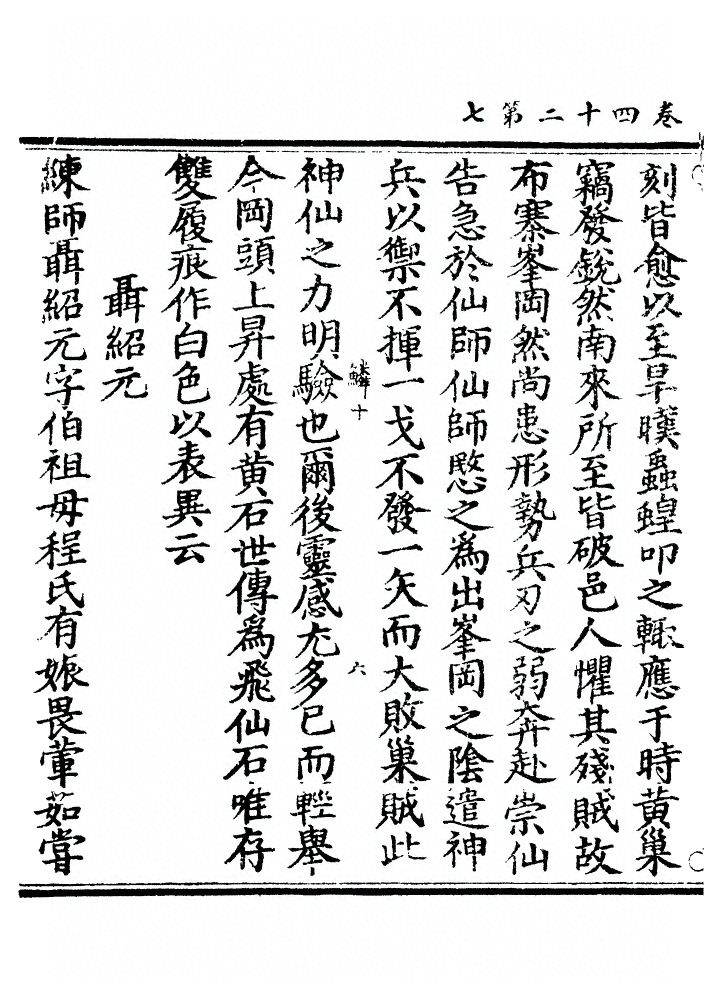 卷四十二第七
刻皆愈以至旱暵蟲蝗叩之輙應于時黃巢
竊發銳然南來所至皆破邑人懼其殘賊故
布寨峯岡然尚患形勢兵刃之弱奔赴崇仙
告急於仙師仙師愍之爲出峯岡之陰遣神
兵以禦不揮一戈不發一矢而大敗巢賊此
鱗十 六
神仙之力明驗也爾後靈感尤多已而輕舉
今岡頭上昇處有黃石世傳爲飛仙石唯存
雙履痕作白色以表異云
聶紹元
練師聶紹元字伯祖母程氏有娠畏葷茹嘗